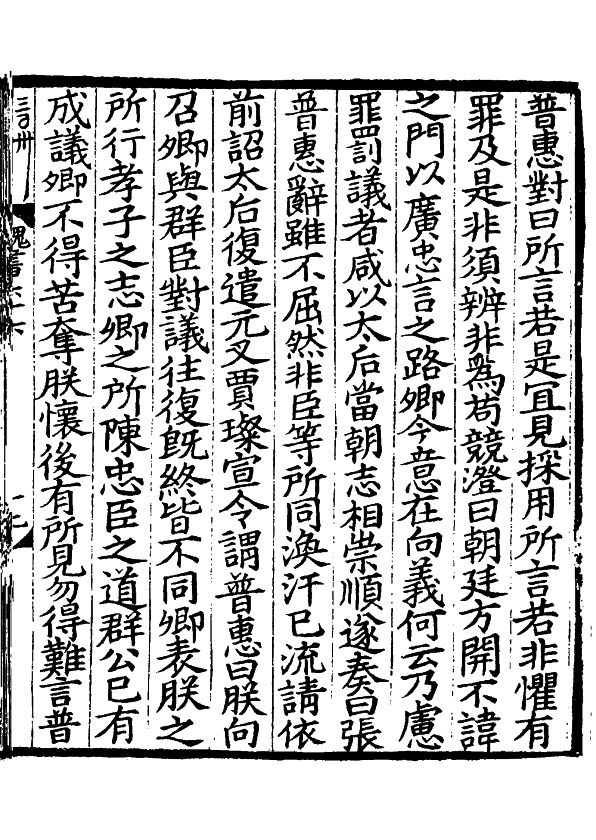 普惠對曰所言若是宜見採用所言若非懼有
罪及是非須辨非爲苟競澄曰朝廷方開不諱
之門以廣忠言之路卿今意在向義何云乃慮
罪罰議者咸以太后當朝志相崇順遂奏曰張
普惠辭雖不屈然非臣等所同渙汗已流請依
前詔太后復遣元叉賈璨宣令謂普惠曰朕向
召卿與群臣對議往復既終皆不同卿表朕之
所行孝子之志卿之所陳忠臣之道群公已有
成議卿不得苦奪朕懷後有所見勿得難言普
魏書六十六